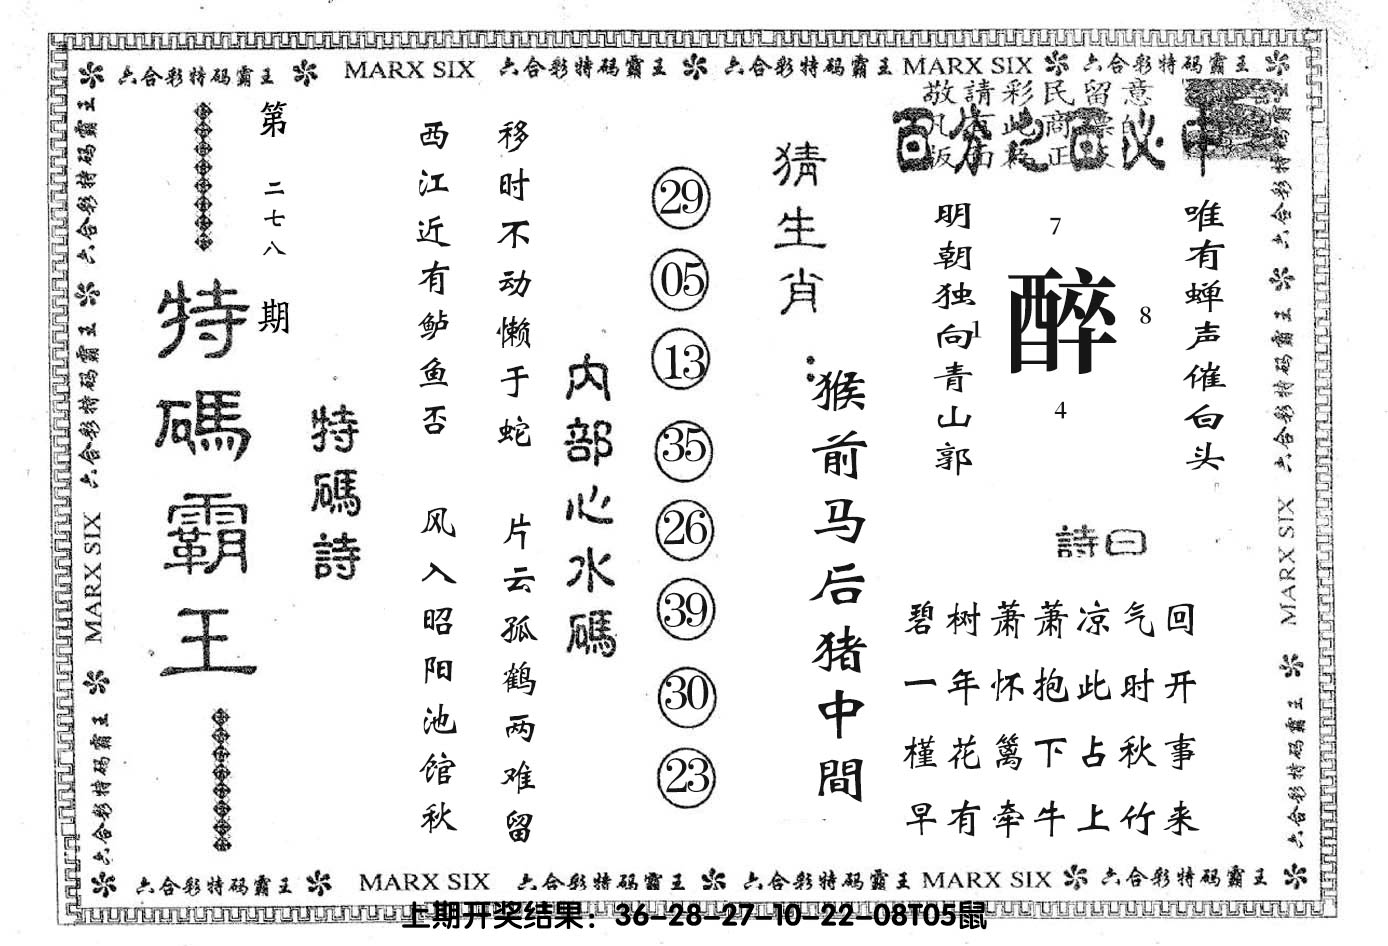 六合彩特码霸王 MARX SIX 六合彩特码霸王 六合彩特码霸王 MARX SIX 六合彩特码霸王
敬請彩民留意
百分之百必中
唯有蝉声催白头
7
醉
1
8
4
明朝独向青山郭
詩曰
碧树萧萧凉气回
一年怀抱此时开
槿花篱下占秋事
早有牵牛上竹来
猜生肖：
猴前马后猪中間
29
05
13
35
26
39
30
23
内部心水碼
移时不动懒于蛇 片云孤鹤两难留
西江近有鲈鱼否 风入昭阳池馆秋
特碼詩
第二七八期
特碼霸王
六合彩特码霸王 六合彩特码霸王 MARX SIX 六合彩特码霸王
六合彩特码霸王 六合彩特码霸王 MARX SIX 六合彩特码霸王
六合彩特码霸王 MARX SIX 六合彩特码霸王 六合彩特码霸王 MARX SIX 六合彩特码霸王
上期开奖结果：36-28-27-10-22-08T05鼠